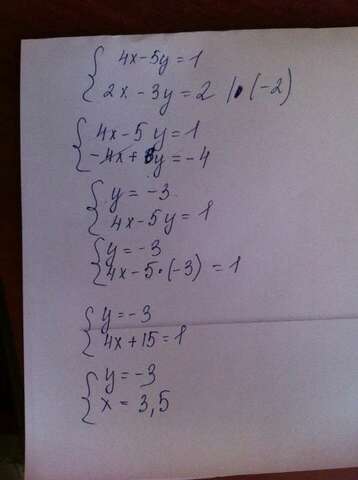 4x-5y=1
2x-3y=2 |•(-2)
4x-5y=1
-4x+6y=-4
y=-3
4x-5y=1
y=-3
4x-5•(-3)=1
y=-3
4x+15=1
y=-3
x=3,5